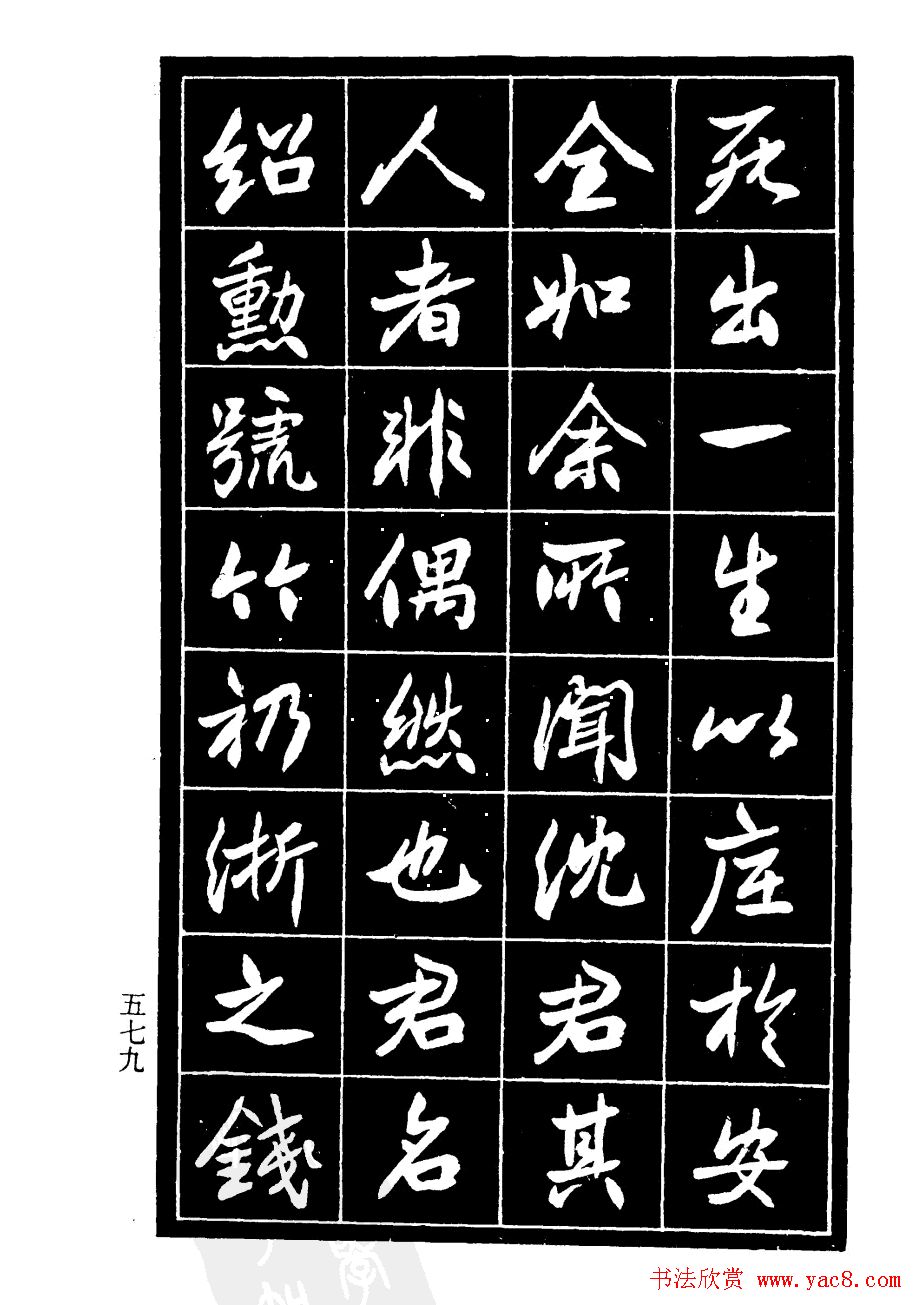 死出一生以底於安
全如余所聞沈君其
人者非偶然也君名
紹勳號竹礽浙之錢
五七九
书法欣赏 www.yac8.com